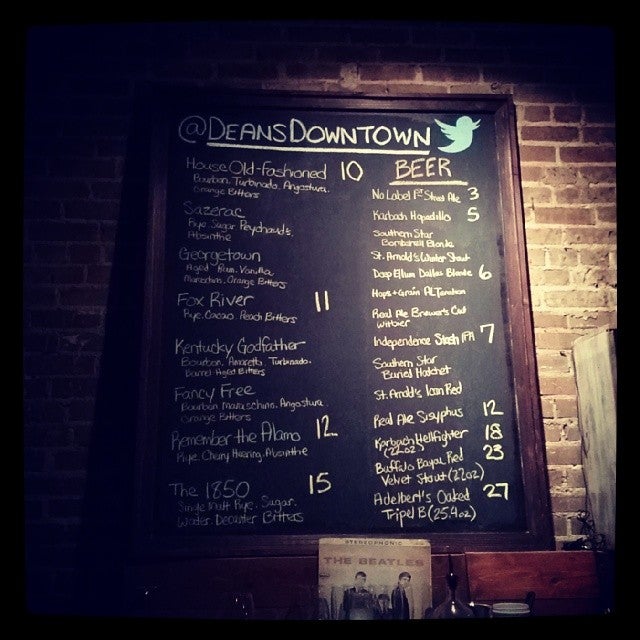 @DEANSDOWNTOWN
House Old-fashioned 10
Bourbon, Turbinado, Angostura,
Orange Bitters
Sazerac
Rye Sugar Peychaud's,
Absinthe
Georgetown
Aged Rum, Vanilla
Maraschino, Orange Bitters
Fox River 11
Rye, Cacao, Peach Bitters
Kentucky Godfather
Bourbon, Amaretto, Turbinado,
Barrel Aged Bitters
Fancy Free
Bourbon Maraschino, Angostura
Orange Bitters
Remember the Alamo 12
Rye, Cherry Heering, Absinthe
The 1850 15
Single Malt Rye, Sugar,
Water, Decanter Bitters
BEER
No Label 1st Street Ale 3
Karbach Hopadillo 5
Southern Star
Bombshell Blonde
St. Arnold's Winter Stout
Deep Ellum Dallas Blonde 6
Hops + Grain ALTeration
Real Ale Brewer's Cut
Witbier
Independence Stash IPA 7
Southern Star
Buried Hatchet
St. Arnold's Icon Red
Real Ale Sisyphus 12
Karbach Hellfighter 18
(22oz)
Buffalo Bayou Red 23
Velvet Stout (22oz)
Adelbert's Oaked 27
Tripel B (25.4oz)
STEREOPHONIC
THE BEATLES